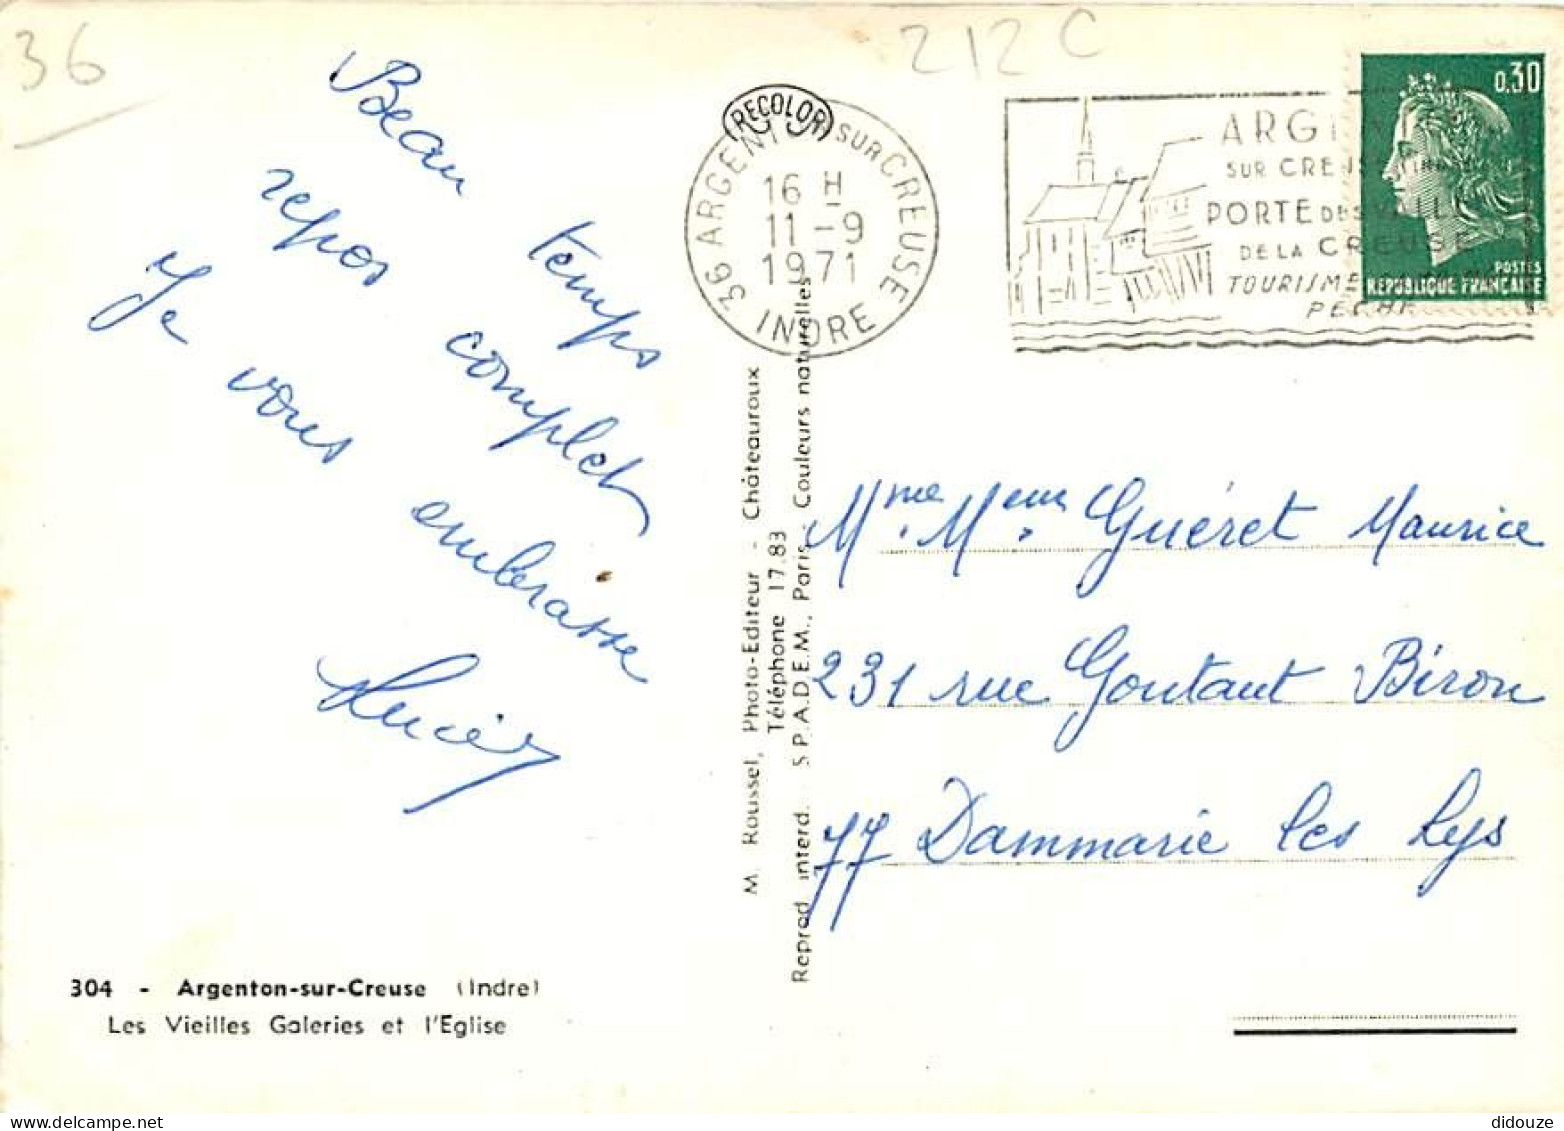 36
212 C
Beau temps
repos complet
Je vous embrasse
RECOLOR
36 ARGENTON SUR CREUSE
16 H
11 -9
1971
INDRE
SUR CREUSE
PORTE DES
DE LA CREUSE
TOURISME
PECHE
0,30
POSTES
REPUBLIQUE FRANÇAISE
M. Roussel, Photo-Editeur - Châteauroux
Téléphone 17.83
Reprod. interd. - S.P.A.D.E.M., Paris - Couleurs naturelles
Mme. Meur Guéret Maurice
231 rue Goutant Biron
77 Dammarie les Lys
304 - Argenton-sur-Creuse (Indre)
Les Vieilles Galeries et l'Eglise
didouze